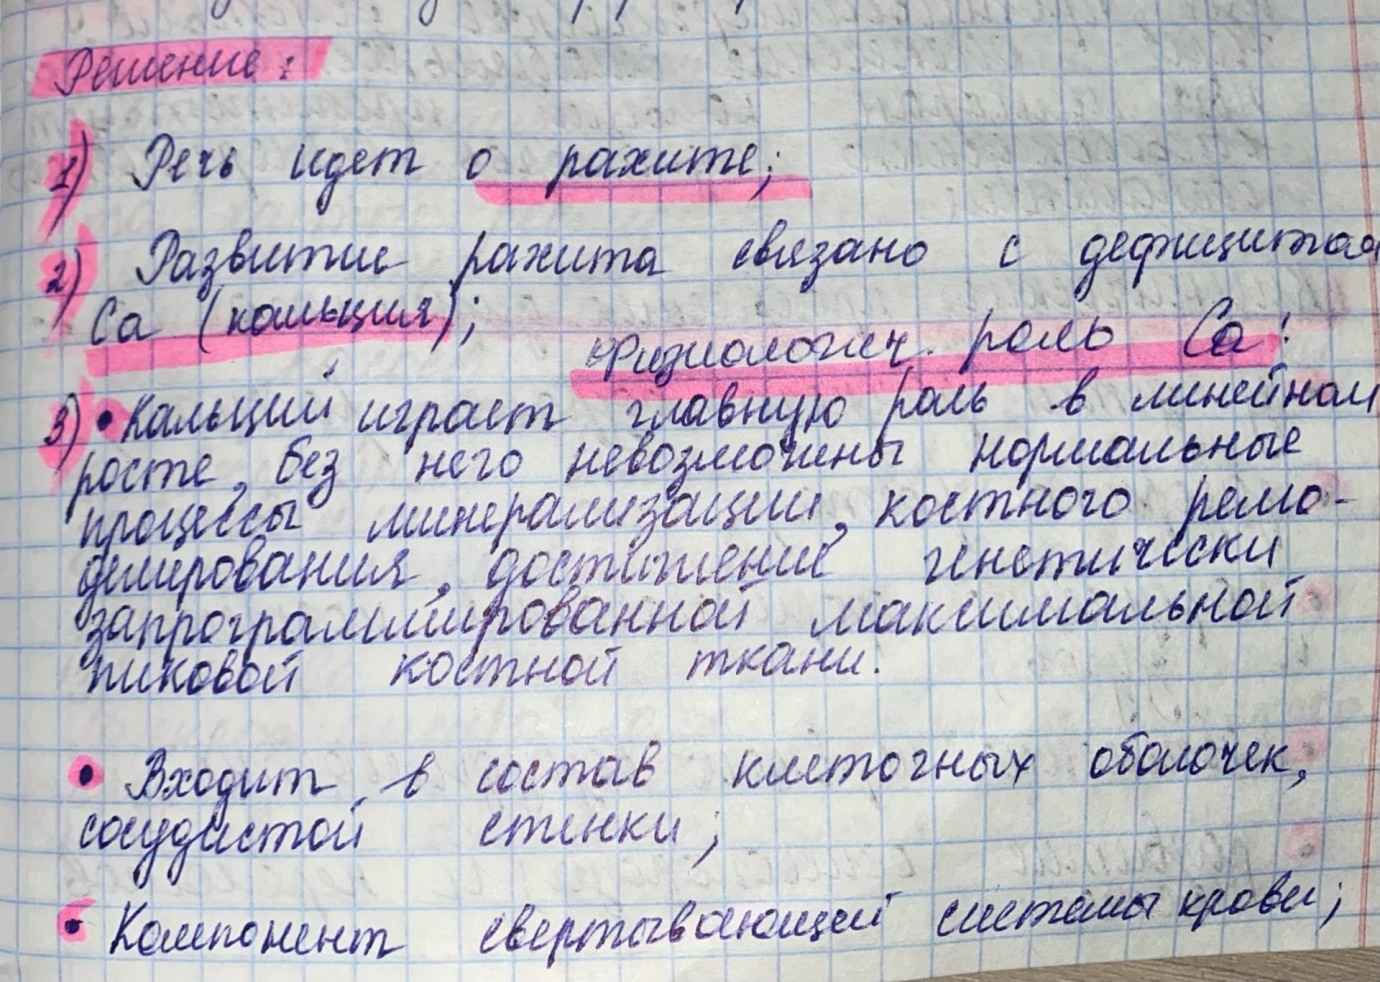 Решение:
1) Речь идет о рахите;
2) Развитие рахита связано с дефицитом
Ca (кальция);
Физиологич. роль Ca:
3) • Кальций играет главную роль в линейном
росте, без него невозможены нормальные
процессы минерализации, костного ремо-
делирования, достижение генетически
запрограммированной максимальной
пиковой костной ткани.
• Входит в состав клеточных оболочек,
сосудистой стенки;
• Компонент свертывающей системы крови;